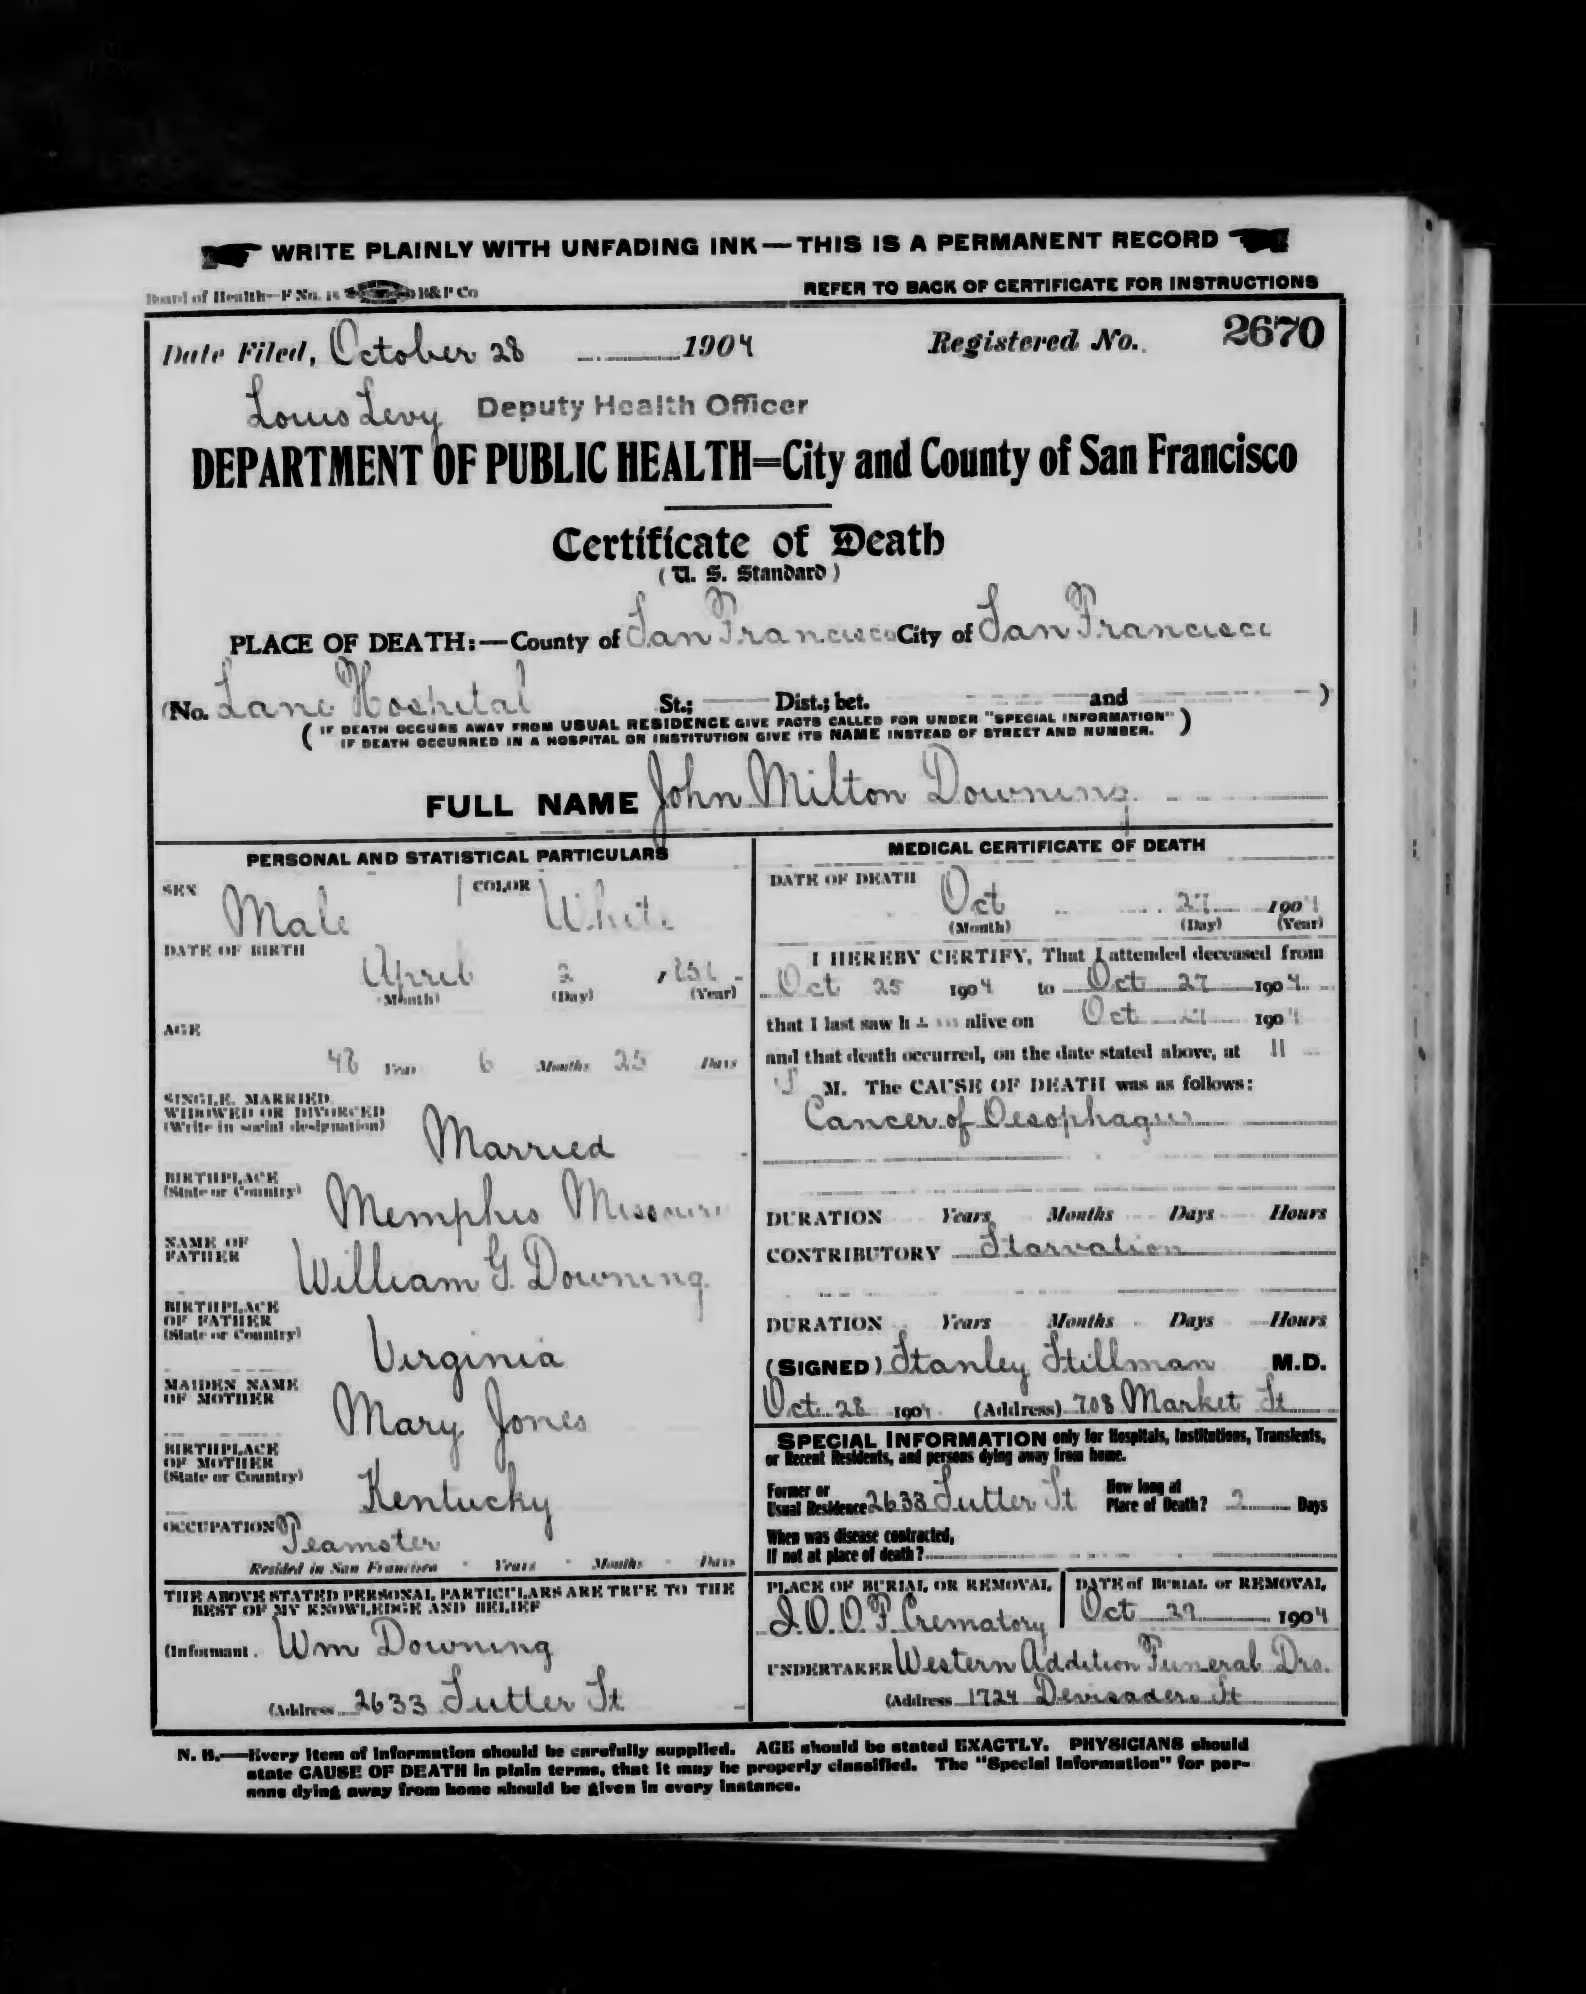 WRITE PLAINLY WITH UNFADING INK—THIS IS A PERMANENT RECORD
Board of Health—F No. 15 B&P Co
REFER TO BACK OF CERTIFICATE FOR INSTRUCTIONS
Date Filed, October 28 1904 Registered No. 2670
Louis Levy Deputy Health Officer
DEPARTMENT OF PUBLIC HEALTH=City and County of San Francisco
Certificate of Death
(U. S. Standard)
PLACE OF DEATH:—County of San Francisco City of San Francisco
(No. Lane Hospital St.; Dist.; bet. and )
( IF DEATH OCCURS AWAY FROM USUAL RESIDENCE GIVE FACTS CALLED FOR UNDER "SPECIAL INFORMATION" )
IF DEATH OCCURRED IN A HOSPITAL OR INSTITUTION GIVE ITS NAME INSTEAD OF STREET AND NUMBER.
FULL NAME John Milton Downing
PERSONAL AND STATISTICAL PARTICULARS
SEX Male COLOR White
DATE OF BIRTH
April 2
(Month) (Day) (Year)
AGE
48 Years 6 Months 25 Days
SINGLE, MARRIED,
WIDOWED OR DIVORCED
(Write in social designation)
Married
BIRTHPLACE
(State or Country)
Memphis Missouri
NAME OF
FATHER
William G. Downing
BIRTHPLACE
OF FATHER
(State or Country)
Virginia
MAIDEN NAME
OF MOTHER
Mary Jones
BIRTHPLACE
OF MOTHER
(State or Country)
Kentucky
OCCUPATION Teamster
Resided in San Francisco Years Months Days
THE ABOVE STATED PERSONAL PARTICULARS ARE TRUE TO THE
BEST OF MY KNOWLEDGE AND BELIEF
(Informant Wm Downing
(Address 2633 Sutter St
MEDICAL CERTIFICATE OF DEATH
DATE OF DEATH
Oct 27 1904
(Month) (Day) (Year)
I HEREBY CERTIFY, That I attended deceased from
Oct 25 1904 to Oct 27 1904
that I last saw h im alive on Oct 27 1904
and that death occurred, on the date stated above, at 11
M. The CAUSE OF DEATH was as follows:
Cancer of Oesophagus
DURATION Years Months Days Hours
CONTRIBUTORY Starvation
DURATION Years Months Days Hours
(SIGNED) Stanley Stillman M.D.
Oct 28 1904 (Address) 708 Market St
SPECIAL INFORMATION only for Hospitals, Institutions, Transients,
or Recent Residents, and persons dying away from home.
Former or
Usual Residence 2633 Sutter St
How long at
Place of Death? 2 Days
When was disease contracted,
If not at place of death?
PLACE OF BURIAL OR REMOVAL
I. O. O. F. Crematory
DATE of BURIAL or REMOVAL
Oct 29 1904
UNDERTAKER Western Addition Funeral Drs.
(Address 1724 Devisadero St
N. B.—Every item of information should be carefully supplied. AGE should be stated EXACTLY. PHYSICIANS should
state CAUSE OF DEATH in plain terms, that it may be properly classified. The "Special Information" for per-
sons dying away from home should be given in every instance.